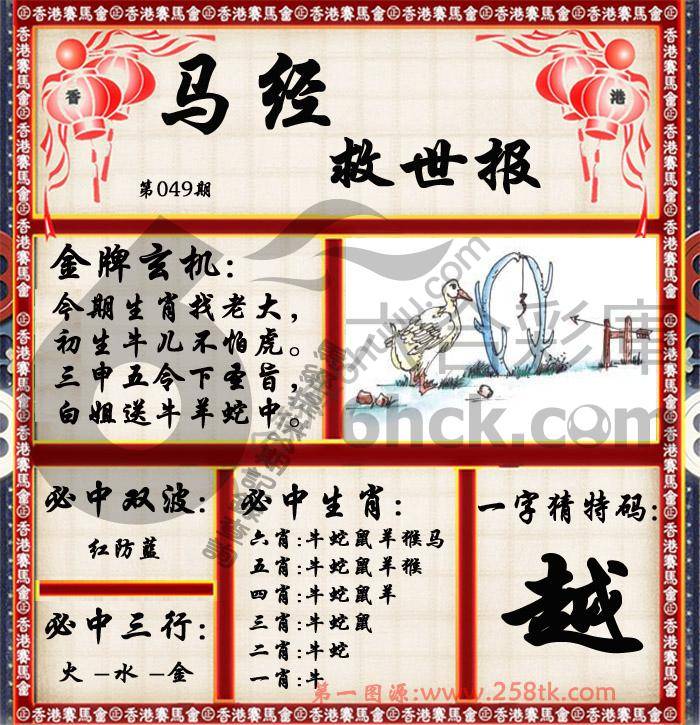 香港賽馬會
香
港
马经
救世报
第049期
金牌玄机:
今期生肖找老大,
初生牛儿不怕虎。
三申五令下圣旨,
白姐送牛羊蛇中。
六合彩庫
6hck.com
必中双波:
红防蓝
必中三行:
火-水-金
必中生肖:
六肖:牛蛇鼠羊猴马
五肖:牛蛇鼠羊猴
四肖:牛蛇鼠羊
三肖:牛蛇鼠
二肖:牛蛇
一肖:牛
一字猜特码:
越
第一图源:www.258tk.com